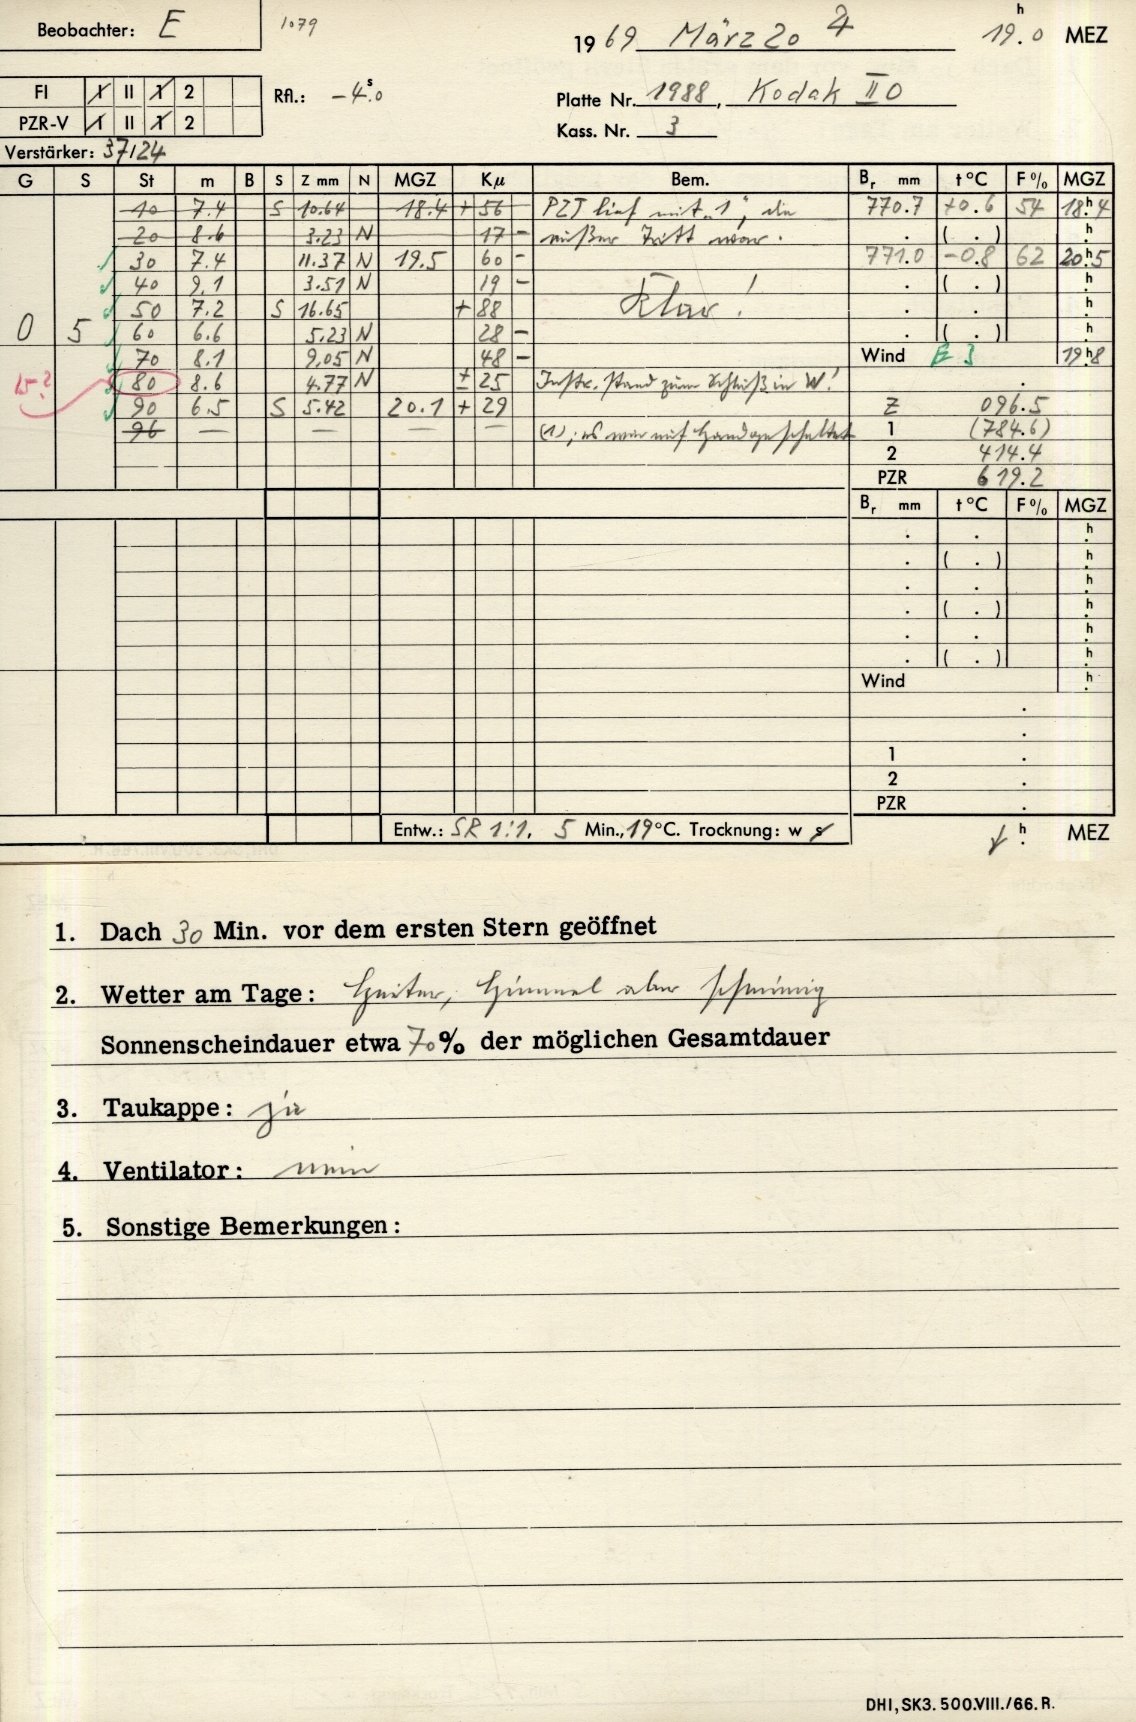 Beobachter: E 1079
1969 März 20 ♃ 19.h0 MEZ
FI 1 II 1 2
Rfl.: -4.s0
Platte Nr. 1988, Kodak II O
PZR-V 1 II 1 2
Kass. Nr. 3
Verstärker: 37/24
G S St m B S Z mm N MGZ Kμ Bem. Br mm t °C F % MGZ
10 7.4 S 10.64 18.4 + 56 PZT lief mit „1“, die 770.7 +0.6 54 18.h4
20 8.6 3.23 N 17 - außer Tritt war. . ( . ) h.
30 7.4 11.37 N 19.5 60 - 771.0 -0.8 62 20.h5
40 9.1 3.51 N 19 - . ( . ) h.
50 7.2 S 16.65 + 88 Klar! . . h.
0 5 60 6.6 5.23 N 28 - . ( . ) h.
70 8.1 9.05 N 48 - Wind E 3 19.h8
15? 80 8.6 4.77 N ± 25 Instr. stand zum Schluß in W! .
90 6.5 S 5.42 20.1 + 29 Z 096.5
96 — — — — (1); es war auf Hand geschaltet 1 (784.6)
2 414.4
PZR 619.2
Br mm t °C F % MGZ
. . h.
. ( . ) h.
. . h.
. ( . ) h.
. . h.
. ( . ) h.
Wind h.
.
.
1 .
2 .
PZR .
Entw.: SR 1:1, 5 Min., 19 °C. Trocknung: w k
h. MEZ
1. Dach 30 Min. vor dem ersten Stern geöffnet
2. Wetter am Tage: Heiter, Himmel aber schlierig
Sonnenscheindauer etwa 70% der möglichen Gesamtdauer
3. Taukappe: ja
4. Ventilator: nein
5. Sonstige Bemerkungen:
DHI, SK3. 500.VIII./66. R.